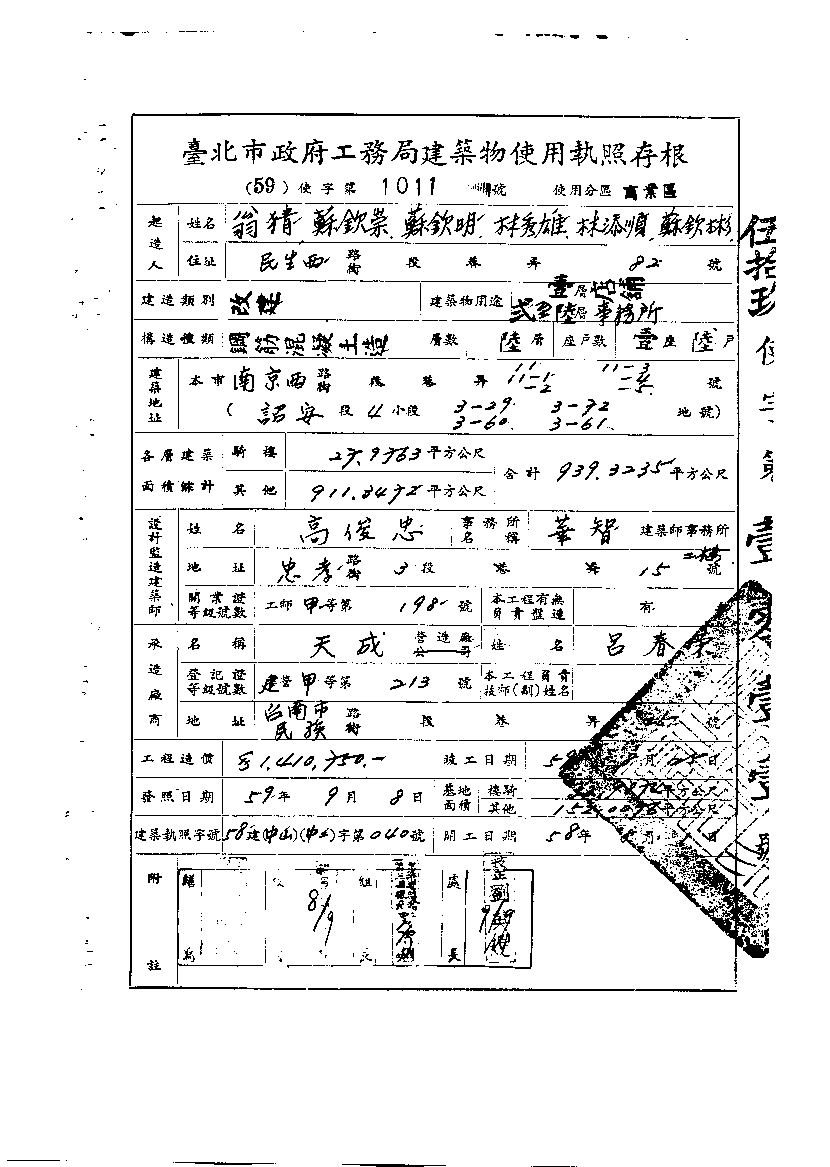 臺北市政府工務局建築物使用執照存根
(59)使字第 1011 號 使用分區 商業區
起造人 姓名 翁猜 蘇欽崇 蘇欽明 林秀雄 林添順 蘇欽彬
住址 民生西 路街 段 巷 弄 82 號
建造類別 改建 建築物用途 壹層店鋪
弍至陸層事務所
構造種類 鋼筋混凝土造 層數 陸層 座戶數 壹座 陸戶
建築地址 本市 南京西 路街 段 巷 弄 11-1 11-2 11-3 11-5 號
(詔安段 4 小段 3-29. 3-60. 3-72 3-61. 地號)
各層建築面積總計 騎樓 27.9763 平方公尺 合計 939.3235 平方公尺
其他 911.3472 平方公尺
設計監造建築師 姓名 高俊忠 事務所名稱 華智 建築師事務所
地址 忠孝 路街 3 段 巷 弄 15 號 二樓
開業證等級號數 工師 甲等第 198 號 本工程有無負責監造 有
承造廠商 名稱 天成 營造廠公司 姓名 呂春
登記證等級號數 建營甲等第 213 號 本工程負責技師(副)姓名
地址 台南市民族 路街 段 巷 弄 號
工程造價 1,410,750.- 竣工日期 59 月 日
發照日期 59年 9月 8日 基地面積 樓騎 平方公尺
其他 平方公尺
建築執照字號 58建(中山)(中山)字第040號 開工日期 58年 月 日
附註 繕寫 8/9 組長 處長
伍拾玖使字第壹零壹壹號